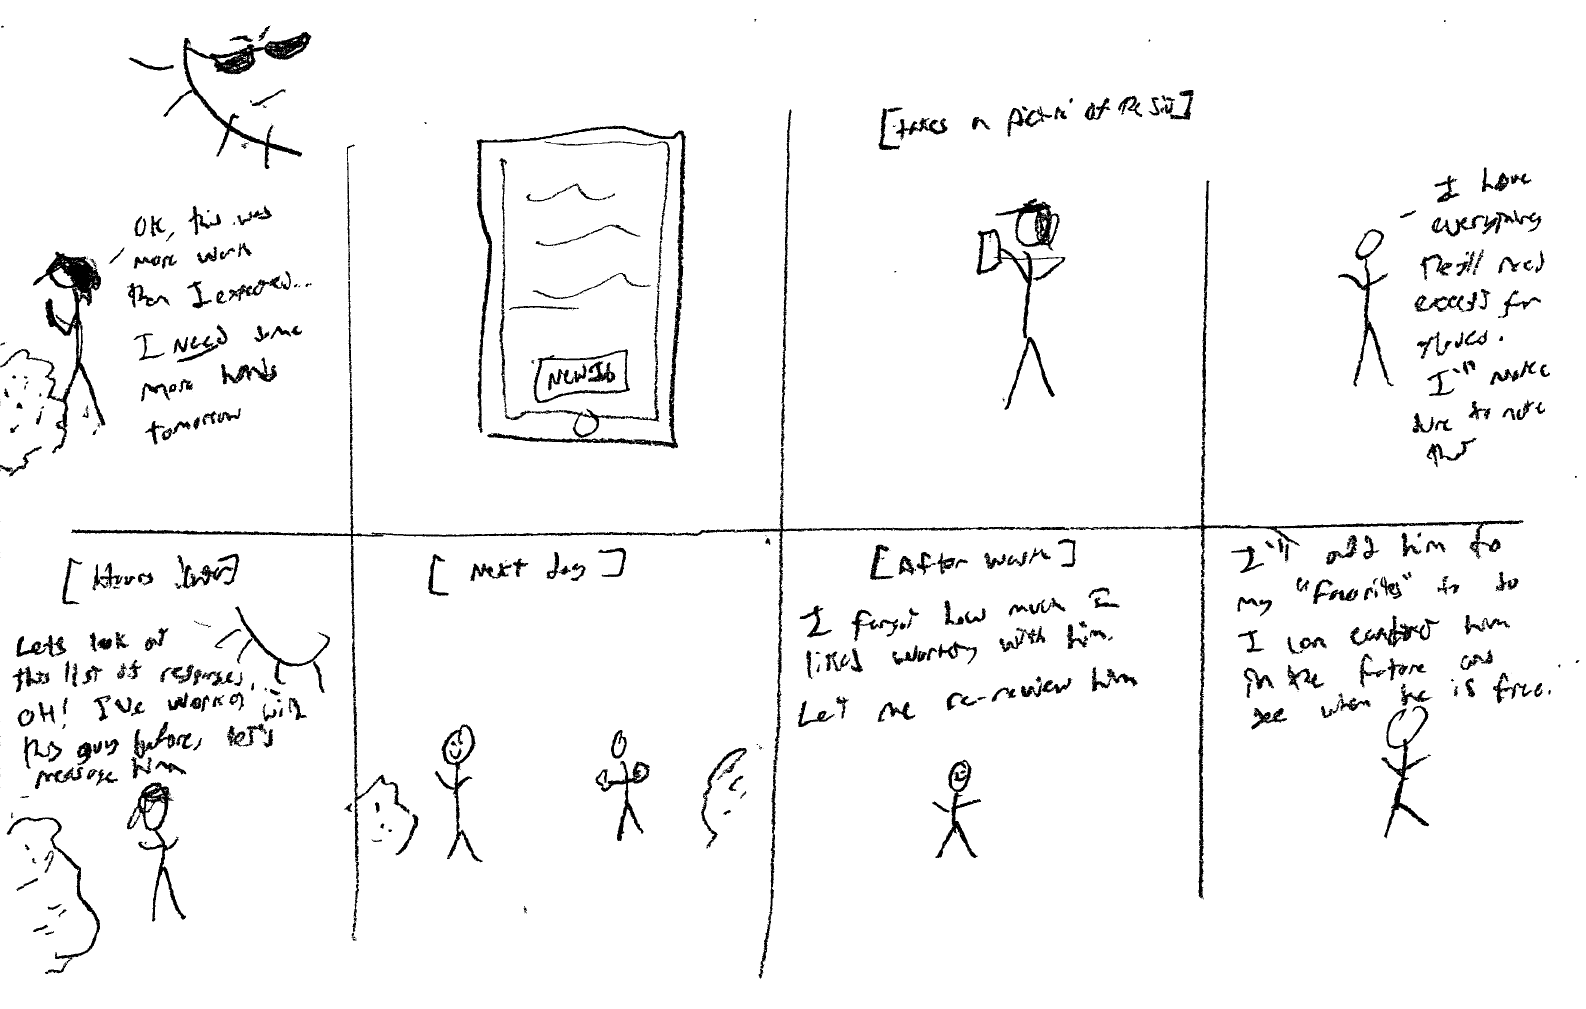 OK, this was
more work
than I expected...
I NEED some
more hands
tomorrow
New Job
[takes a picture of the site]
I have
everything
they'll need
except for
gloves.
I'll make
sure to note
that
[Hours later]
Lets look at
this list of responses,
OH! I've worked with
this guy before, let's
message him
[Next day]
[After work]
I forgot how much I
liked working with him.
Let me re-review him
I'll add him to
my "favorites" so
I can contact him
in the future and
see when he is free.